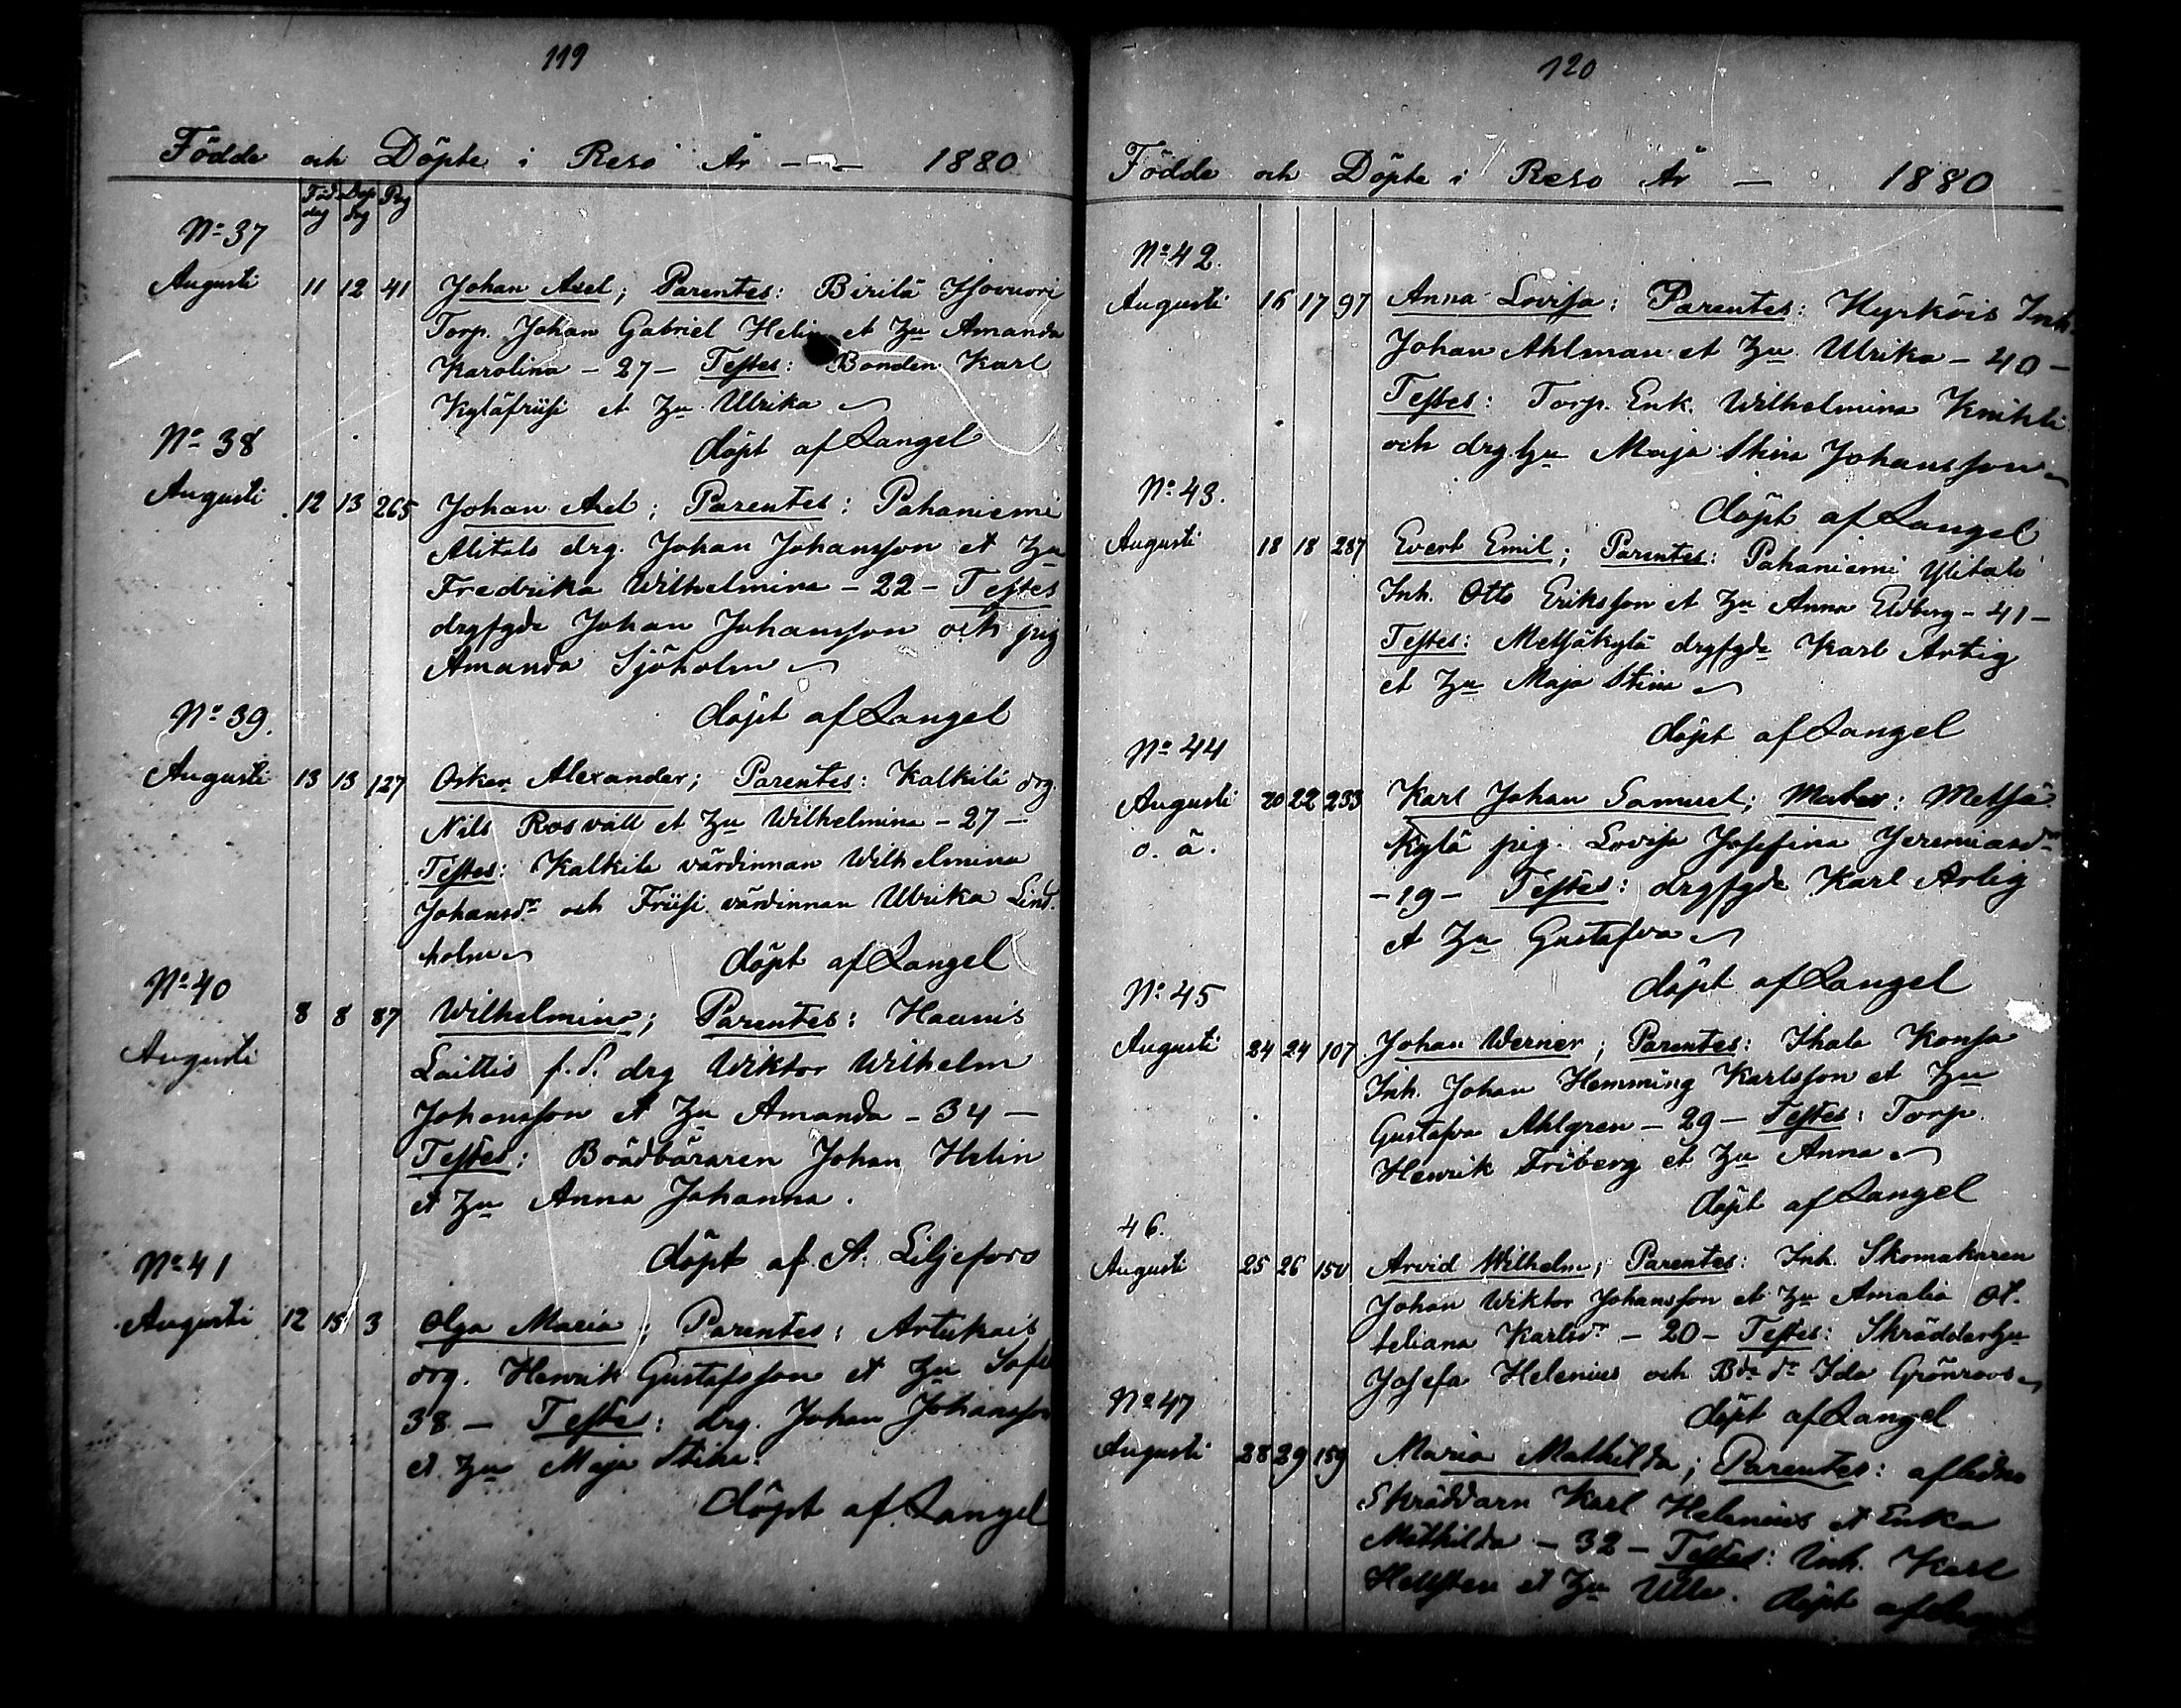 119
Födde och Döpte i Reso År - - - 1880
Föd dag Dop dag Pag
No 37
Augusti 11 12 41 Johan Axel; Parentes: Birilä Isovuori
Torp. Johan Gabriel Helin et Hu Amanda
Karolina - 27 - Testes: Bonden Karl
Kyläfriisi et Hu Ulrika
döpt af Langel
No 38
Augusti 12 13 265 Johan Axel; Parentes: Pahaniemi
Alitalo drg. Johan Johansson et Hu
Fredrika Wilhelmina - 22 - Testes
drgfgde Johan Johansson och pig
Amanda Sjöholm
döpt af Langel
No 39.
Augusti 13 13 127 Oskar Alexander; Parentes: Kalkila drg
Nils Rosvall et Hu Wilhelmina - 27 -
Testes: Kalkila värdinnan Wilhelmina
Johansdr och Friisi värdinnan Ulrika Lind-
holm
döpt af Langel
No 40
Augusti 8 8 87 Wilhelmina; Parentes: Haunis
Laittis f.d. drg Wiktor Wilhelm
Johansson et Hu Amanda - 34 -
Testes: Brädbäraren Johan Helin
et Hu Anna Johanna.
döpt af A. Liljefors
No 41
Augusti 12 15 3 Olga Maria; Parentes: Artukais
drg. Henrik Gustafsson et Hu Sofi
38 - Teste: drg. Johan Johansson
et Hu Maja Stina.
döpt af Langel
120
Födde och Döpte i Reso År - 1880
No 42.
Augusti 16 17 97 Anna Lovisa: Parentes: Hyrköis Inh.
Johan Ahlman et Hu Ulrika - 40 -
Testes: Torp. Enk. Wilhelmina Knihti
och drg hu Maja Stina Johansson
döpt af Langel
No 43.
Augusti 18 18 287 Evert Emil; Parentes: Pahaniemi Ylitalo
Inh. Otto Eriksson et Hu Anna Edberg - 41 -
Testes: Metsäkylä drgfgde Karl Artig
et Hu Maja Stina
döpt af Langel
No 44
Augusti 20 22 233 Karl Johan Samuel; Mater: Metsä
o. ä. kylä pig. Lovisa Josefina Jeremiasdr
- 19 - Testes: drgfgde Karl Artig
et Hu Gustafva
döpt af Langel
No 45
Augusti 24 24 107 Johan Werner; Parentes: Ihala Konsa
Inh. Johan Hemming Karlsson et Hu
Gustafva Ahlgren - 29 - Testes: Torp.
Henrik Friberg et Hu Anna
döpt af Langel
46.
Augusti 25 26 150 Arvid Wilhelm; Parentes: Inh. Skomakaren
Johan Wiktor Johansson et Hu Amalia Ot-
teliana Karlsdr - 20 - Testes: Skräddarhu
Josefa Helenius och Bde dr Ida Grönroos
döpt af Langel
No 47
Augusti 28 29 159 Maria Mathilda; Parentes: aflidne
Skräddarn Karl Helenius et Enka
Mathilda - 32 - Testes: Inh. Karl
Hellsten et Hu Ulla. döpt af Langel